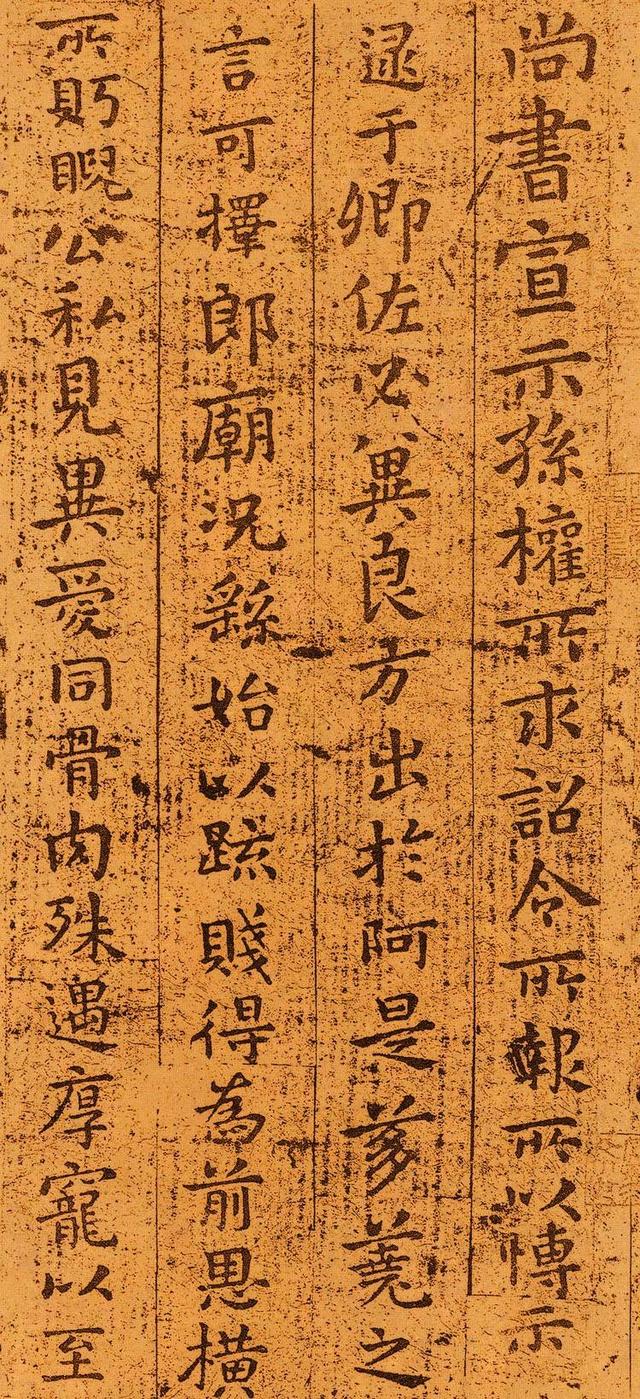 尚書宣示孫權所求詔令所報所以博示
逮于卿佐必異良方出於阿是芻蕘之
言可擇郎廟況繇始以疏賤得為前恩橫
所盻睨公私見異愛同骨肉殊遇厚寵以至